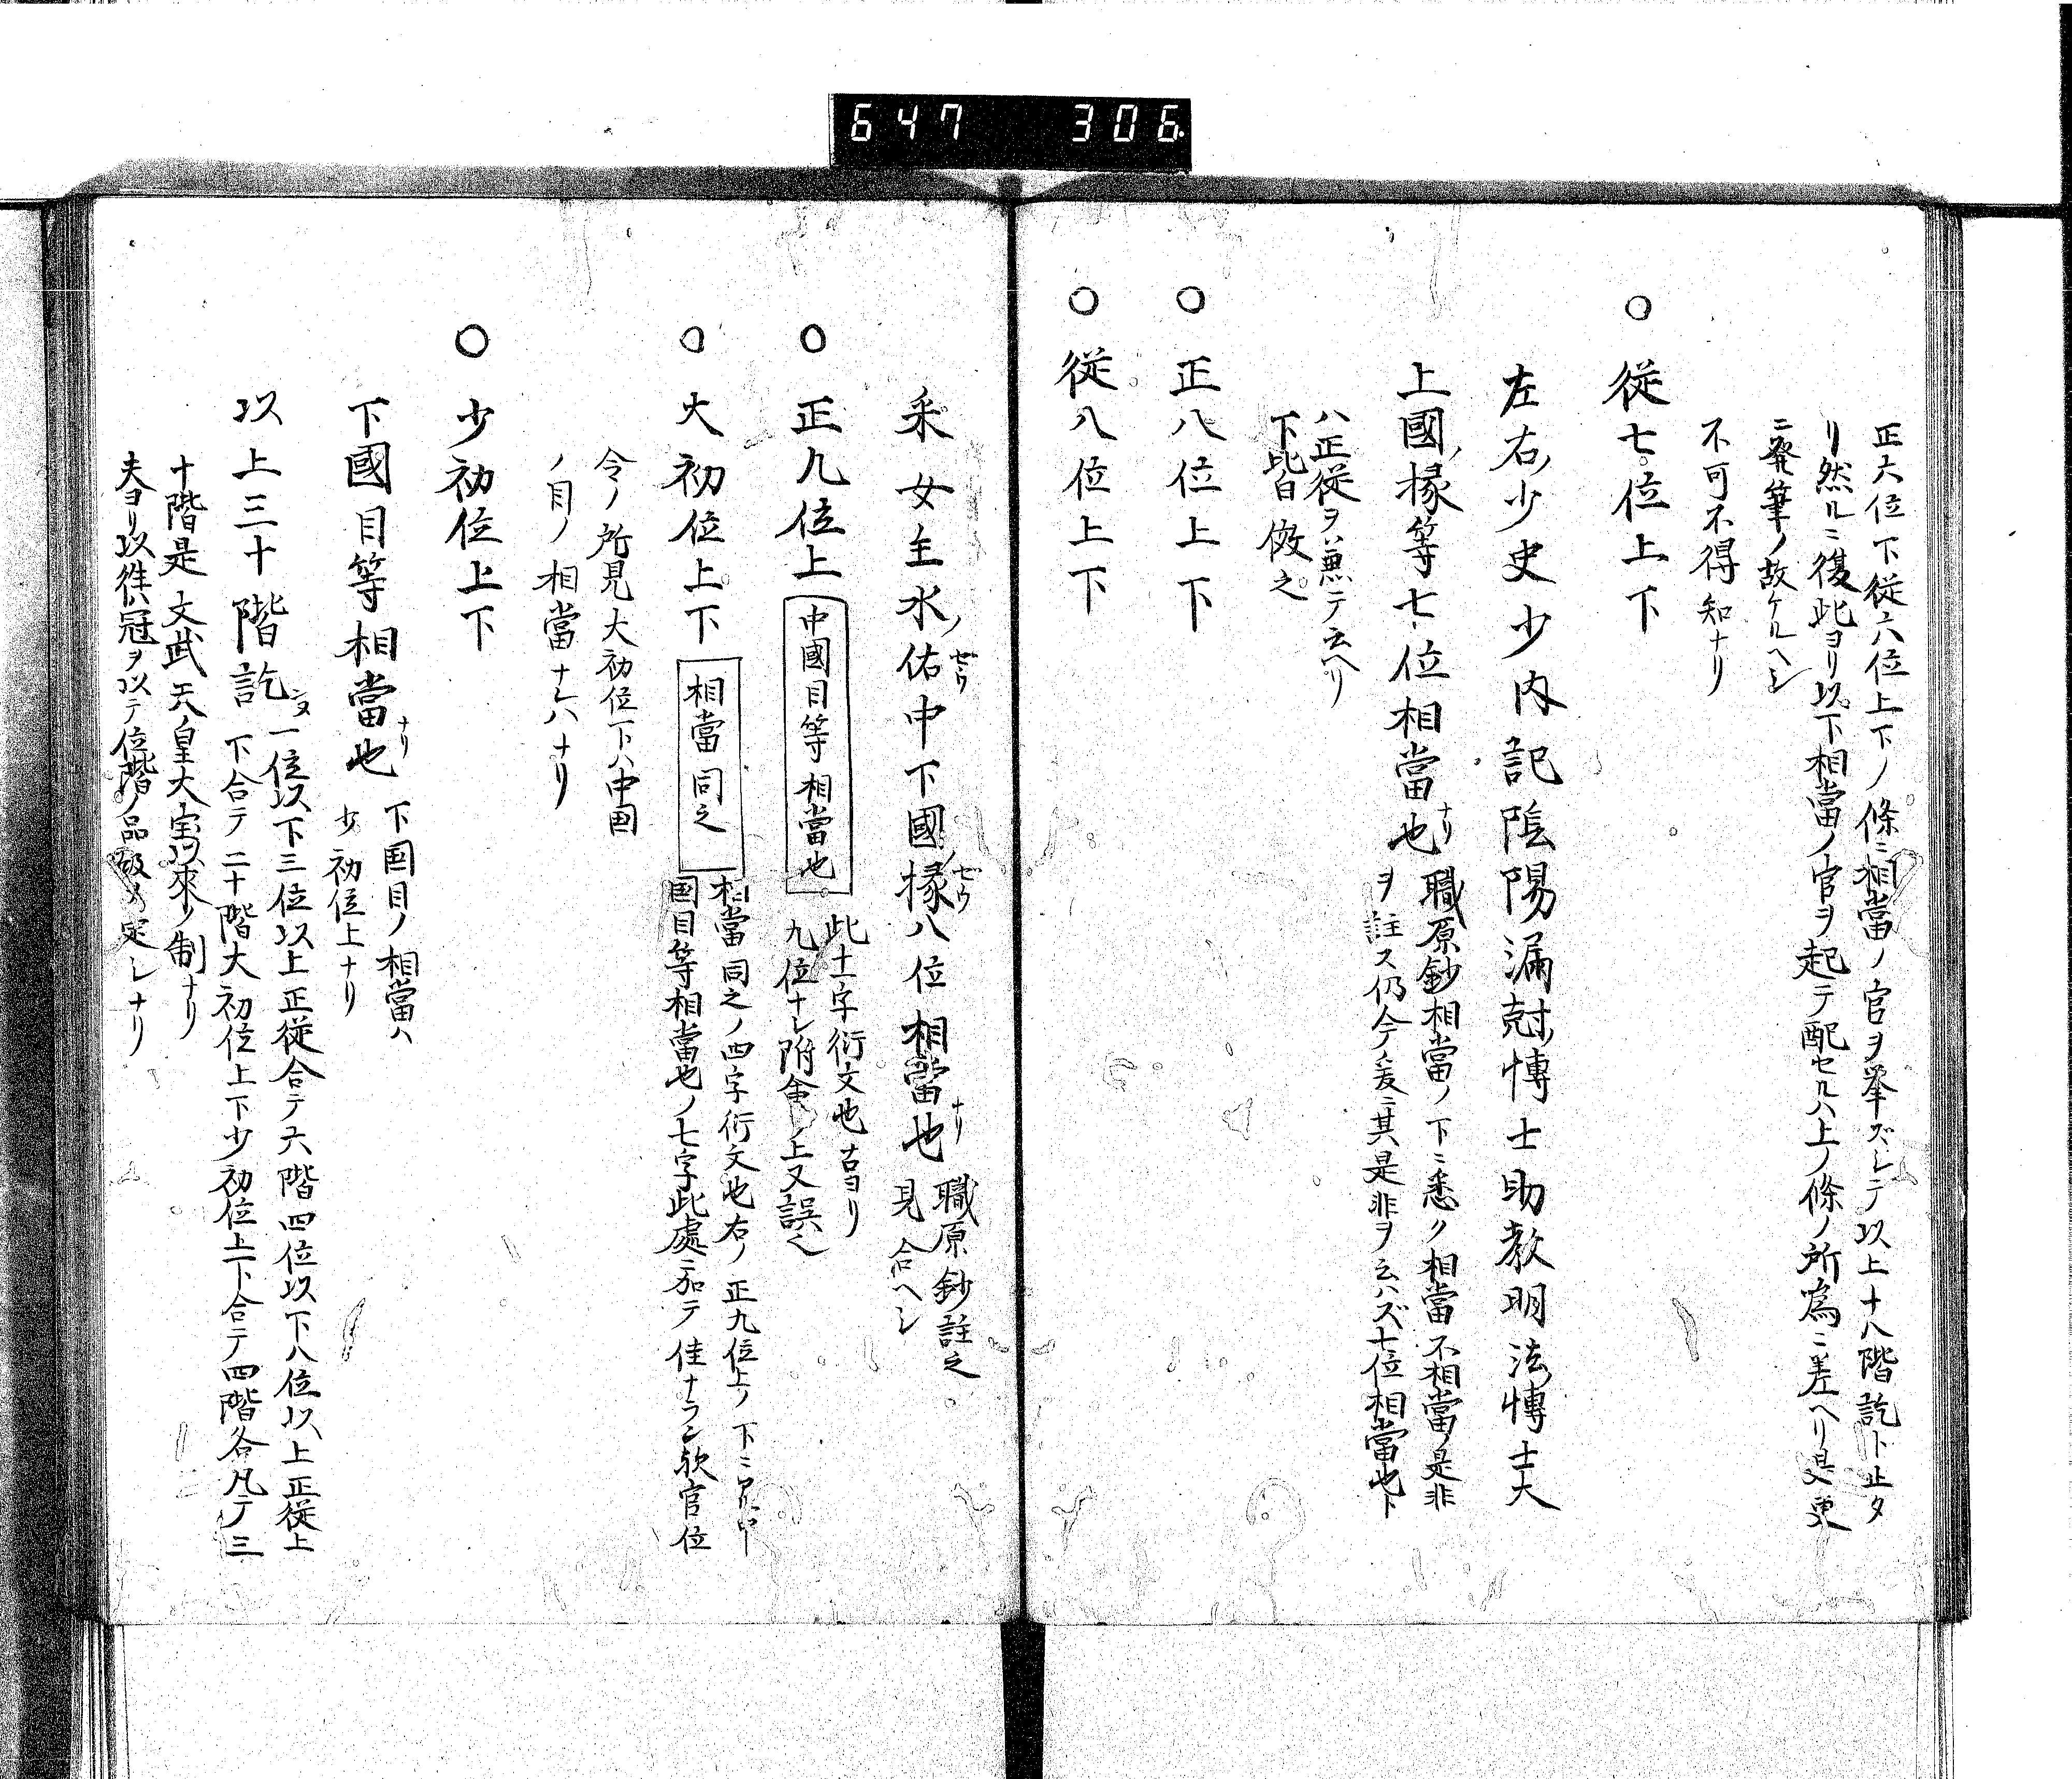 647 306
正六位下従六位上下ノ條ニ相當ノ官ヲ挙ズシテ以上十八階訖ト止タ
リ然ルニ復此ヨリ以下相當ノ官ヲ起テ配セルハ上ノ條ノ所為ニ差ヘリ是更
ニ発筆ノ故ケルヘシ
不可不得知ナリ
○従七位上下
左右ノ少史少内記陰陽漏尅博士助教明法博士大
上國ノ掾等七位相當也ナリ
職原鈔相當ノ下ニ悉ク相當不相當ノ是非
ヲ註ス仍今爰ニ其是非ヲ云ハズ七位相當也ト
ハ正従ヲ兼テ云ヘリ
下皆倣之
○正八位上下
○従八位上下
采女主水ノ佑ゼウ中下國ノ掾ゼウ八位相當也ナリ
職原鈔註之
見合ヘシ
○正九位上
中國目等相當也
此十一字衍文也古ヨリ
九位ナシ附會ノ上又誤ヘ
○大初位上下
相當同之
相當同之ノ四字衍文也右ノ正九位上ノ下ニアル中
国目等相當也ノ七字此處ニ加テ佳ナラン歟官位
令ノ所見大初位下ハ中国
ノ目ノ相當ナレハナリ
○少初位上下
下國目等相當也ナリ
下国目ノ相當ハ
少初位上ナリ
以上三十階訖
一位以下三位以上正従合テ六階四位以下八位以上正従上
下合テ二十階大初位上下少初位上下合テ四階各凡テ三
十階是文武天ノ皇大宝以來ノ制ナリ
夫ヨリ以往冠ヲ以テ位階ノ品級ヲ定シナリ